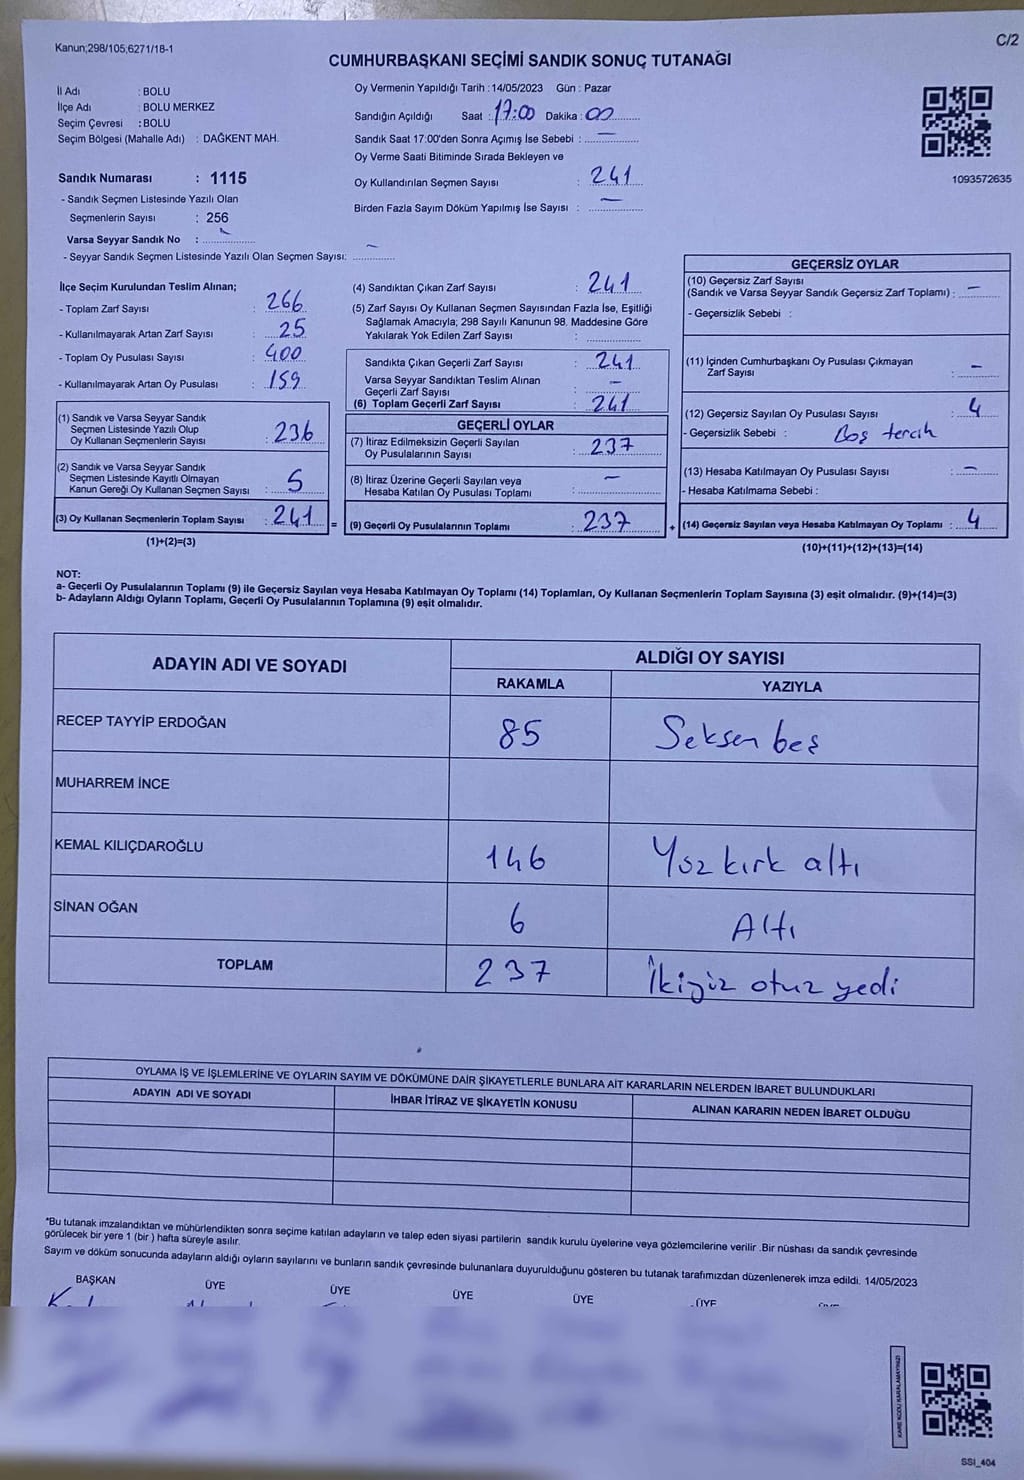 Kanun;298/105;6271/18-1
C/2
CUMHURBAŞKANI SEÇİMİ SANDIK SONUÇ TUTANAĞI
İl Adı : BOLU
İlçe Adı : BOLU MERKEZ
Seçim Çevresi : BOLU
Seçim Bölgesi (Mahalle Adı) : DAĞKENT MAH.
Sandık Numarası : 1115
- Sandık Seçmen Listesinde Yazılı Olan
Seçmenlerin Sayısı : 256
Varsa Seyyar Sandık No :
- Seyyar Sandık Seçmen Listesinde Yazılı Olan Seçmen Sayısı: –
Oy Vermenin Yapıldığı Tarih : 14/05/2023 Gün : Pazar
Sandığın Açıldığı Saat : 17:00 Dakika : 00
Sandık Saat 17:00'den Sonra Açımış İse Sebebi : –
Oy Verme Saati Bitiminde Sırada Bekleyen ve
Oy Kullandırılan Seçmen Sayısı : 241
Birden Fazla Sayım Döküm Yapılmış İse Sayısı : –
1093572635
İlçe Seçim Kurulundan Teslim Alınan;
- Toplam Zarf Sayısı : 266
- Kullanılmayarak Artan Zarf Sayısı : 25
- Toplam Oy Pusulası Sayısı : 400
- Kullanılmayarak Artan Oy Pusulası : 159
(1) Sandık ve Varsa Seyyar Sandık
Seçmen Listesinde Yazılı Olup
Oy Kullanan Seçmenlerin Sayısı : 236
(2) Sandık ve Varsa Seyyar Sandık
Seçmen Listesinde Kayıtlı Olmayan
Kanun Gereği Oy Kullanan Seçmen Sayısı : 5
(3) Oy Kullanan Seçmenlerin Toplam Sayısı : 241 =
(1)+(2)=(3)
(4) Sandıktan Çıkan Zarf Sayısı : 241
(5) Zarf Sayısı Oy Kullanan Seçmen Sayısından Fazla İse, Eşitliği
Sağlamak Amacıyla; 298 Sayılı Kanunun 98. Maddesine Göre
Yakılarak Yok Edilen Zarf Sayısı :
Sandıkta Çıkan Geçerli Zarf Sayısı : 241
Varsa Seyyar Sandıktan Teslim Alınan
Geçerli Zarf Sayısı : –
(6) Toplam Geçerli Zarf Sayısı : 241
GEÇERLİ OYLAR
(7) İtiraz Edilmeksizin Geçerli Sayılan
Oy Pusulalarının Sayısı : 237
(8) İtiraz Üzerine Geçerli Sayılan veya
Hesaba Katılan Oy Pusulası Toplamı : –
(9) Geçerli Oy Pusulalarının Toplamı : 237 +
GEÇERSİZ OYLAR
(10) Geçersiz Zarf Sayısı
(Sandık ve Varsa Seyyar Sandık Geçersiz Zarf Toplamı) : –
- Geçersizlik Sebebi :
(11) İçinden Cumhurbaşkanı Oy Pusulası Çıkmayan
Zarf Sayısı : –
(12) Geçersiz Sayılan Oy Pusulası Sayısı : 4
- Geçersizlik Sebebi : Boş tercih
(13) Hesaba Katılmayan Oy Pusulası Sayısı : –
- Hesaba Katılmama Sebebi :
(14) Geçersiz Sayılan veya Hesaba Katılmayan Oy Toplamı : 4
(10)+(11)+(12)+(13)=(14)
NOT:
a- Geçerli Oy Pusulalarının Toplamı (9) ile Geçersiz Sayılan veya Hesaba Katılmayan Oy Toplamı (14) Toplamları, Oy Kullanan Seçmenlerin Toplam Sayısına (3) eşit olmalıdır. (9)+(14)=(3)
b- Adayların Aldığı Oyların Toplamı, Geçerli Oy Pusulalarının Toplamına (9) eşit olmalıdır.
ADAYIN ADI VE SOYADI
ALDIĞI OY SAYISI
RAKAMLA YAZIYLA
RECEP TAYYİP ERDOĞAN 85 Seksen beş
MUHARREM İNCE
KEMAL KILIÇDAROĞLU 146 Yüz kırk altı
SİNAN OĞAN 6 Altı
TOPLAM 237 İkiyüz otuz yedi
OYLAMA İŞ VE İŞLEMLERİNE VE OYLARIN SAYIM VE DÖKÜMÜNE DAİR ŞİKAYETLERLE BUNLARA AİT KARARLARIN NELERDEN İBARET BULUNDUKLARI
ADAYIN ADI VE SOYADI İHBAR İTİRAZ VE ŞİKAYETİN KONUSU ALINAN KARARIN NEDEN İBARET OLDUĞU
*Bu tutanak imzalandıktan ve mühürlendikten sonra seçime katılan adayların ve talep eden siyasi partilerin sandık kurulu üyelerine veya gözlemcilerine verilir .Bir nüshası da sandık çevresinde
görülecek bir yere 1 (bir ) hafta süreyle asılır.
Sayım ve döküm sonucunda adayların aldığı oyların sayılarını ve bunların sandık çevresinde bulunanlara duyurulduğunu gösteren bu tutanak tarafımızdan düzenlenerek imza edildi. 14/05/2023
BAŞKAN ÜYE ÜYE ÜYE ÜYE ÜYE
KARE KODU KARALAMAYINIZ!
SSI_404